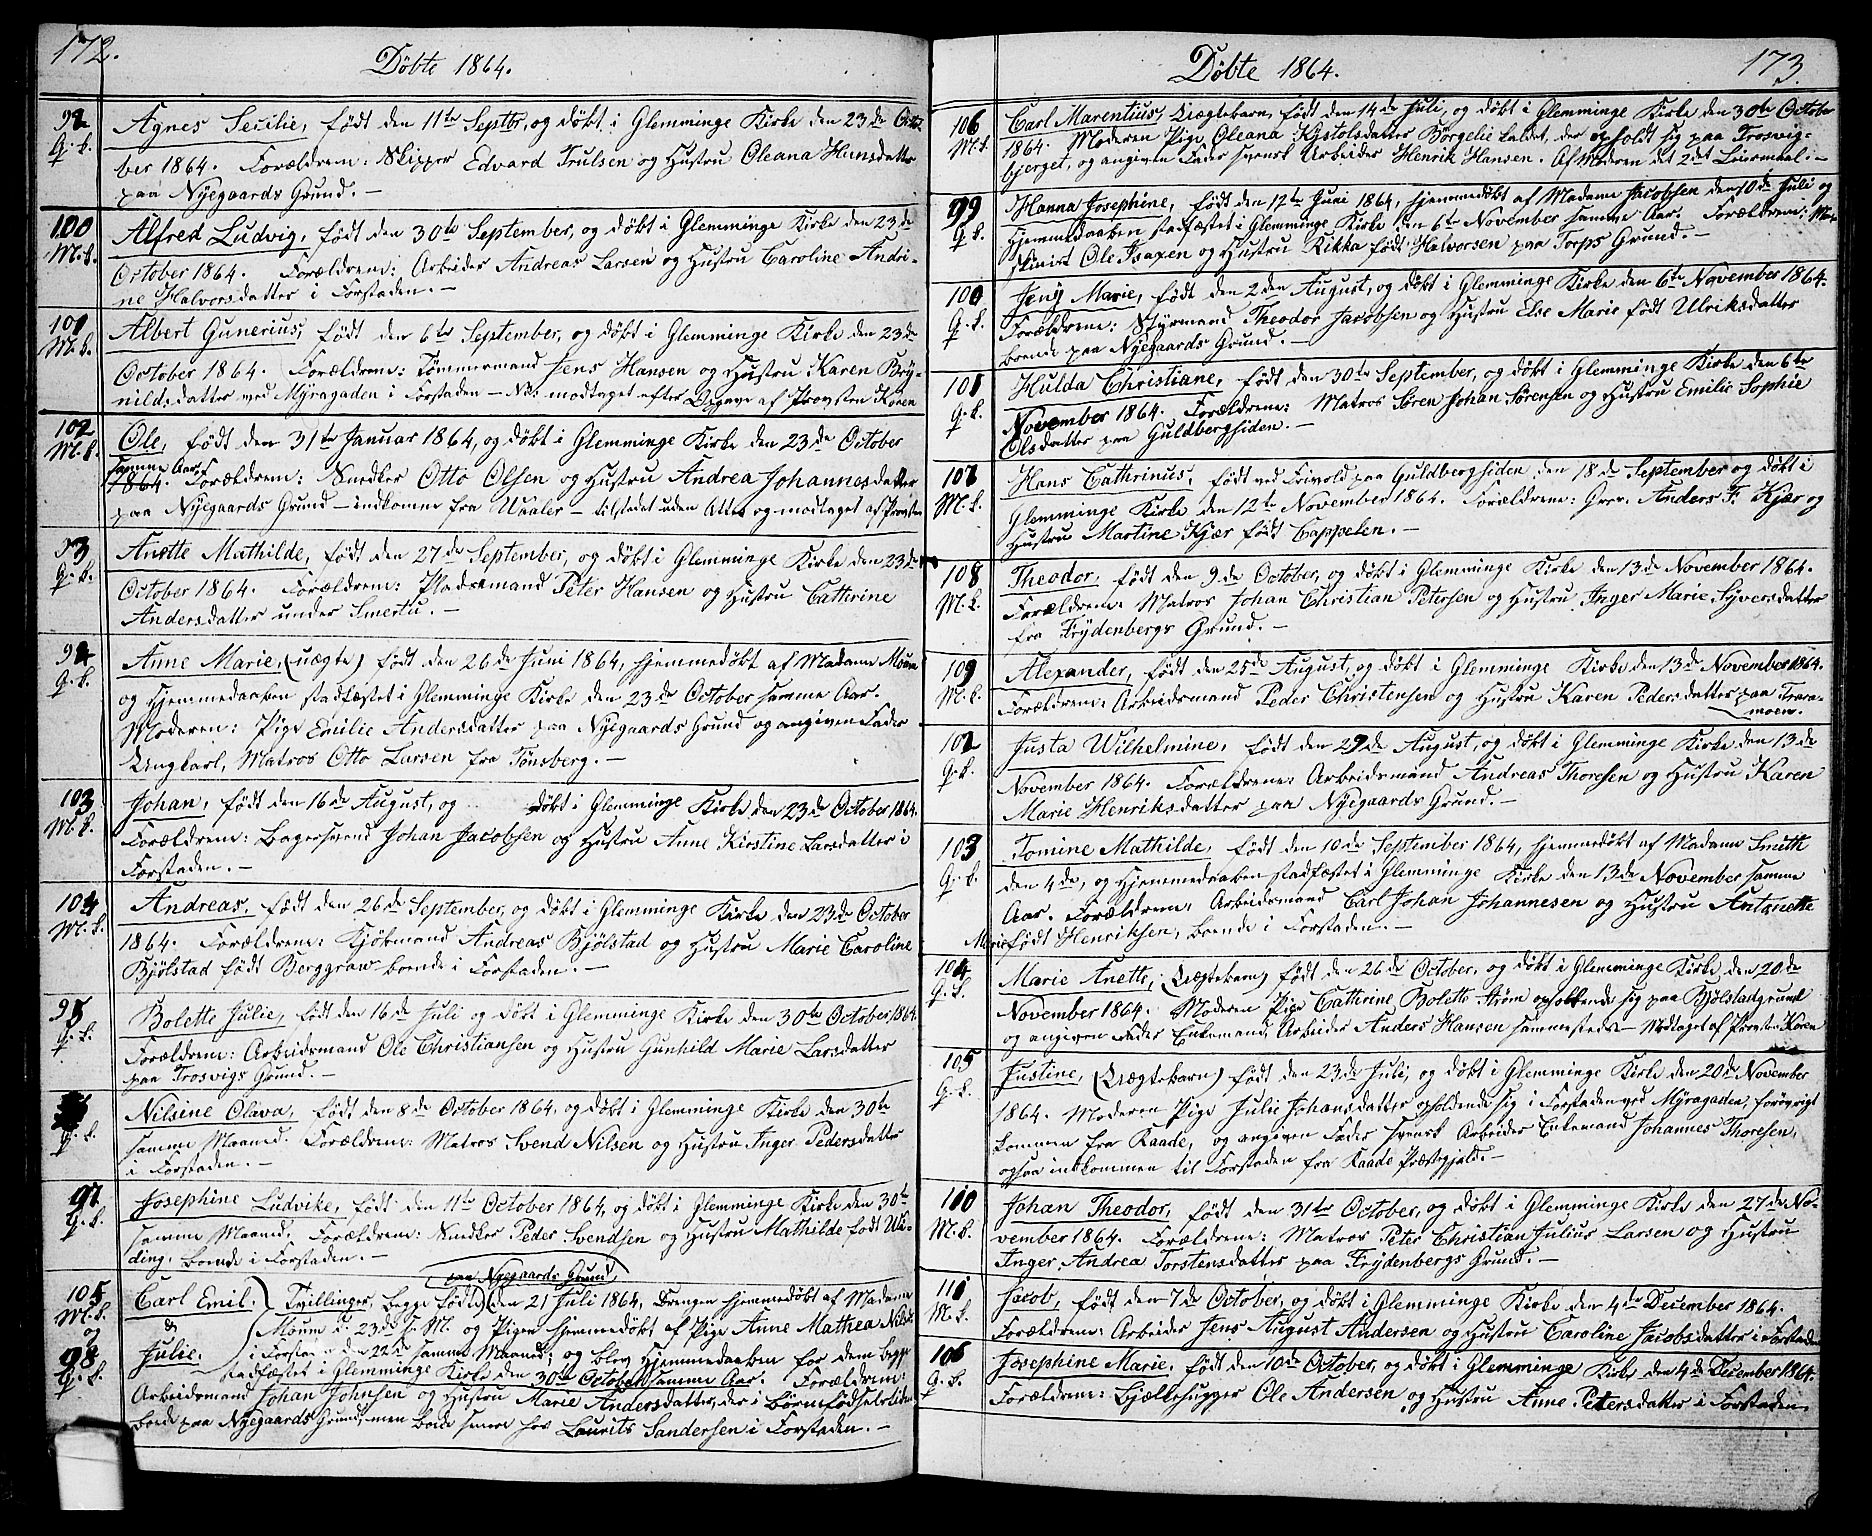 172.
Döbte 1864.
92
Q. K.
Agnes Secilie, født den 11te Septbr, og døbt i Glemminge Kirke den 23de Octo-
ber 1864. Forældrene: Skipper Edvard Trulsen og Hustru Oleana Hansdatter
paa Nyegaards Grund. —
100
M. K.
Alfred Ludvig, født den 30te September, og døbt i Glemminge Kirke den 23de
October 1864. Forældrene: Arbeider Andreas Larsen og Hustru Caroline Andri-
ne Halvorsdatter i Forstaden. —
101
M. K.
Albert Gunerius, født den 6te September, og døbt i Glemminge Kirke den 23de
October 1864. Forældrene: Tømmermand Jens Hansen og Hustru Karen Bry-
nildsdatter ved Myragaden i Forstaden — NB: modtaget efter Opgave af Provsten Koren
102
M. K.
Ole, født den 31te Januar 1864, og døbt i Glemminge Kirke den 23de October
samme Aar.
1864. Forældrene: Snedker Otto Olsen og Hustru Andrea Johannesdatter
paa Nyegaards Grund — indkomne fra Vaaler — tilstedet uden Attest og modtaget af Provsten
93
Q. K.
Anette Mathilde, født den 27de September, og døbt i Glemminge Kirke den 23de
October 1864. Forældrene: Pladsemand Peter Hansen og Hustru Cathrine
Andersdatter under Smertu. —
94
Q. K.
Anne Marie, (uægte) født den 26de Juni 1864, hjemmedøbt af Madame Moum
og Hjemmedaaben stadfæstet i Glemminge Kirke den 23de October samme Aar.
Moderen: Pige Emilie Andersdatter paa Nyegaards Grund og angiven Fader
Ungkarl, Matros Otto Larsen fra Tønsberg. —
103
M. K.
Johan, født den 16de August, og døbt i Glemminge Kirke den 23de October 1864.
Forældrene: Bagersvend Johan Jacobsen og Hustru Anne Kirstine Larsdatter i
Forstaden. —
104
M. K.
Andreas, født den 26de September, og døbt i Glemminge Kirke den 23de October
1864. Forældrene: Kjøbmand Andreas Bjölstad og Hustru Marie Caroline
Bjölstad født Berggraw boende i Forstaden. —
95
Q. K.
Bolette Julie, født den 16de Juli og døbt i Glemminge Kirke den 30te October 1864.
Forældrene: Arbeidsmand Ole Christiansen og Hustru Gunhild Marie Larsdatter
paa Trosvigs Grund. —
Q. K.
Nilsine Olava, født den 8de October 1864, og døbt i Glemminge Kirke den 30te
samme Maaned. Forældrene: Matros Svend Nilsen og Hustru Inger Pedersdatter
i Forstaden. —
97.
Q. K.
Josephine Ludvike, født den 11te October 1864, og døbt i Glemminge Kirke den 30te
samme Maaned. Forældrene: Snedker Peder Svendsen og Hustru Mathilde født Ud-
ding, boende i Forstaden. —
paa Nyegaards Grund
105
M. K.
og
98
Q. K.
Carl Emil. } Tvillinger, begge fødte den 21 Juli 1864, Drengen hjemmedøbt af Madame
& Moum d. 23de s. M. og Pigen hjemmedøbt af Pige Anne Mathea Nils
Julie. i Forstaden den 22de samme Maaned; og blev Hjemmedaaben for dem begge
stadfæstet i Glemminge Kirke den 30te October samme Aar. Forældrene:
Arbeidsmand Johan Johnsen og Hustru Marie Andersdatter, der i Børnefødselstiden
boede paa Nyegaards Grund, men boede senere hos Laurits Sandersen i Forstaden. —
173.
Döbte 1864.
106
M. K.
Carl Marentius, Uægtebarn, født den 14de Juli, og døbt i Glemminge Kirke den 30te October
1864. Moderen Pige Oleana Kystolsdatter Börgelie kaldet, der opholdt sig paa Trosvig-
bjerget, og angiven Fader svensk Arbeider Henrik Hansen. Af Moderen det 2det Leiermaal. —
99
Q. K.
Hanna Josephine, født den 12te Juni 1864, hjemmedøbt af Madame Jacobsen den 10de Juli og
Hjemmedaaben stadfæstet i Glemminge Kirke den 6te November samme Aar. Forældrene: Ma-
skinist Ole Isaxen og Hustru Rikka født Halvorsen paa Torps Grund. —
100
Q. K.
Jeny Marie, født den 2den August, og døbt i Glemminge Kirke den 6te November 1864.
Forældrene: Styrmand Theodor Jacobsen og Hustru Else Marie født Ulriksdatter
boende paa Nyegaards Grund. —
101
Q. K.
Hulda Christiane, født den 30te September, og døbt i Glemminge Kirke den 6te
November 1864. Forældrene: Matros Sören Johan Sörensen og Hustru Emilie Sophie
Olsdatter paa Guldbergsiden. —
107
M. K.
Hans Cathrinus, født ved Frivold paa Guldbergsiden, den 18de September og døbt i
Glemminge Kirke den 12te November 1864. Forældrene: Grev. Anders F. Kjær og
Hustru Martine Kjær født Cappelen. —
108
M. K.
Theodor, født den 9de October, og døbt i Glemminge Kirke den 13de November 1864.
Forældrene: Matros Johan Christian Petersen og Hustru Inger Marie Syversdatter
fra Frydenbergs Grund. —
109
M. K.
Alexander, født den 25de August, og døbt i Glemminge Kirke den 13de November 1864.
Forældrene: Arbeidsmand Peder Christensen og Hustru Karen Pedersdatter paa Trara-
moen.
102
Q. K.
Justa Wilhelmine, født den 29de August, og døbt i Glemminge Kirke den 13de
November 1864. Forældrene: Arbeidsmand Andreas Thoresen og Hustru Karen
Marie Henriksdatter paa Nyegaards Grund. —
103
Q. K.
Tomine Mathilde, født den 10de September 1864, hjemmedøbt af Madame Smith
den 4de, og Hjemmedaaben stadfæstet i Glemminge Kirke den 13de November samme
Aar. Forældrene: Arbeidsmand Carl Johan Johannesen og Hustru Antonette
Marie født Henriksen, boende i Forstaden. —
104
Q. K.
Marie Anette, (Uægtebarn) født den 26de October, og døbt i Glemminge Kirke, den 20de
November 1864. Moderen Pige Cathrine Bolette Strøm opholdende sig paa Bjölstadgrund
og angiven Fader Enkemand, Arbeider Anders Hansen sammesteds — Modtaget af Provsten Koren
105
Q. K.
Justine, (Uægtebarn) født den 23de Juli, og døbt i Glemminge Kirke den 20de November
1864. Moderen Pige Julie Johansdatter opholdende sig i Forstaden ved Myragaden, forøvrigt
kommen fra Raade, og angiven Fader svensk Arbeider Enkemand Johannes Thoresen,
ogsaa indkommen til Forstaden fra Raade Præstegjeld. —
110
M. K.
Johan Theodor, født den 31te October, og døbt i Glemminge Kirke den 27de No-
vember 1864. Forældrene: Matros Peter Christian Julius Larsen og Hustru
Inger Andrea Torstensdatter paa Frydenbergs Grund. —
111
M. K.
Jacob, født den 7de October, og døbt i Glemminge Kirke den 4de December 1864.
Forældrene: Arbeider Jens August Andersen og Hustru Caroline Jacobsdatter i Forstaden
106
Q. K.
Josephine Marie, født den 10de October, og døbt i Glemminge Kirke den 4de December 1864.
Forældrene: Bjælkehugger Ole Andersen og Hustru Anne Petersdatter i Forstaden.